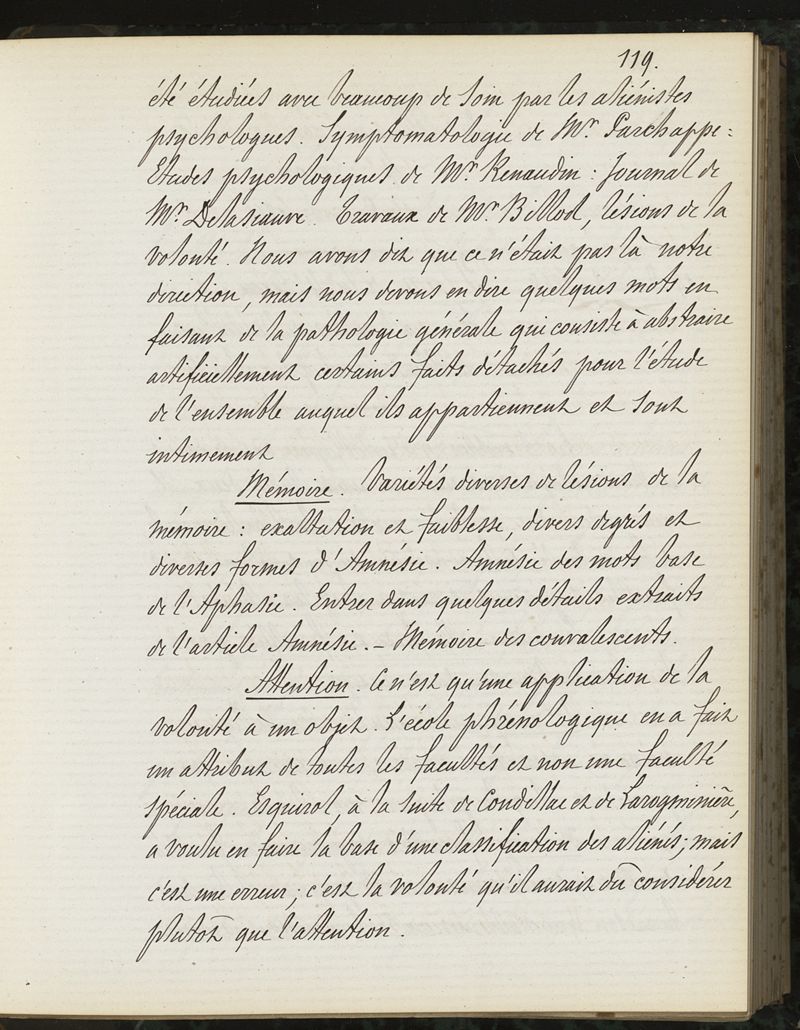 119.
été étudiées avec beaucoup de soin par les aliénistes
psychologues. Symptomatologie de Mr Parchappe :
Etudes psychologiques de Mr Renaudin : Journal de
Mr Delasiauve. Travaux de Mr Billod, lésions de la
volonté. Nous avons dit que ce n'était pas là notre
direction, mais nous devons en dire quelques mots en
faisant de la pathologie générale qui consiste à abstraire
artificiellement certains faits détachés pour l'étude
de l'ensemble auquel ils appartiennent et sont
intimement
Mémoire. Variétés diverses de lésions de la
mémoire : exaltation et faiblesse, divers degrés et
diverses formes d'Amnésie. Amnésie des mots base
de l'Aphasie. Entrer dans quelques détails extraits
de l'article Amnésie. – Mémoire des convalescents.
Attention. Ce n'est qu'une application de la
volonté à un objet. L'école phrénologique en a fait
un attribut de toutes les facultés et non une faculté
spéciale. Esquirol, à la suite de Condillac et de Laromiguière,
a voulu en faire la base d'une classification des aliénés; mais
c'est une erreur; c'est la volonté qu'il aurait dû considérer
plutôt que l'attention.